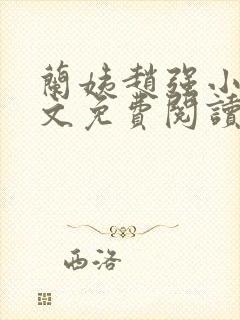 蘭姨趙強小
文免費閱讀
西洛